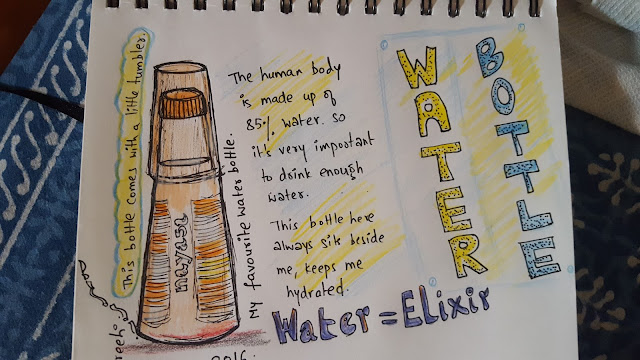 This bottle comes with a little tumbler.
nayasa
My favourite water bottle.
The human body
is made up of
85% water. so
it's very important
to drink enough
water.
This bottle here
always sits beside
me, keeps me
hydrated.
Water = Elixir
WATER
BOTTLE
2016.